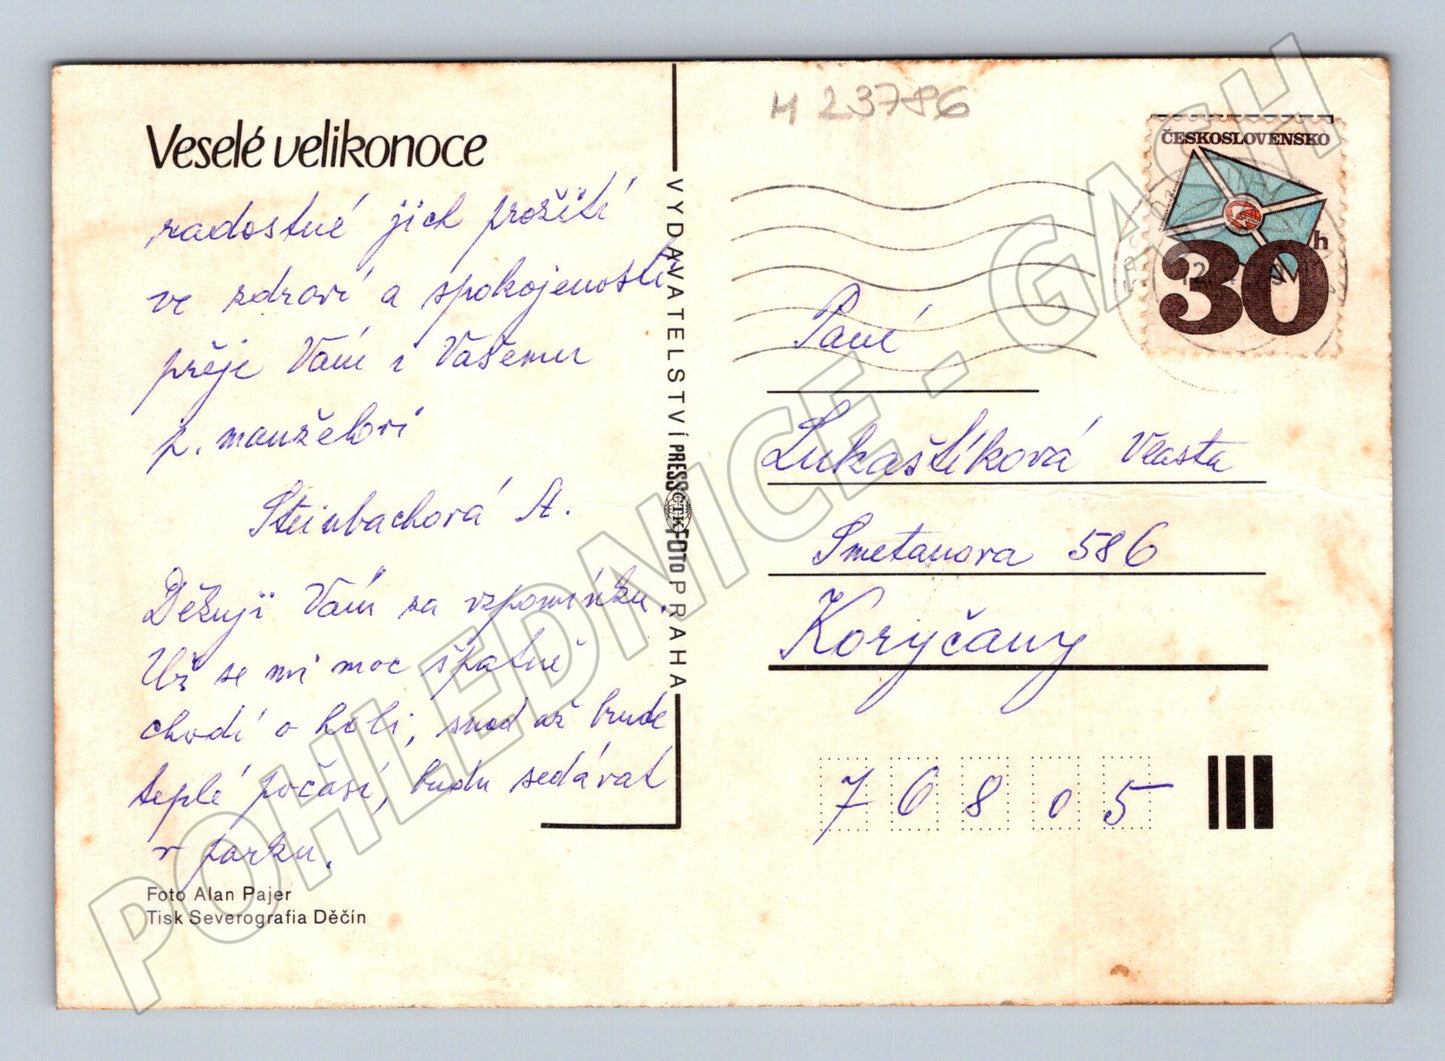 Veselé velikonoce
radostné jich prožití
ve zdraví a spokojenosti
přeje Vám i Vašemu
p. manželovi
Steinbachová A.
Děkuji Vám za vzpomínku.
Už se mi moc špatně
chodí o holi, snad až bude
teplé počasí, budu sedávat
v parku.
Foto Alan Pajer
Tisk Severografia Děčín
VYDAVATELSTVÍ PRESSFOTO PRAHA
ČTK
M 23786
ČESKOSLOVENSKO
30 h
Paní
Lukaštíková Vlasta
Smetanova 586
Koryčany
768 05
POHLEDNICE - GASH